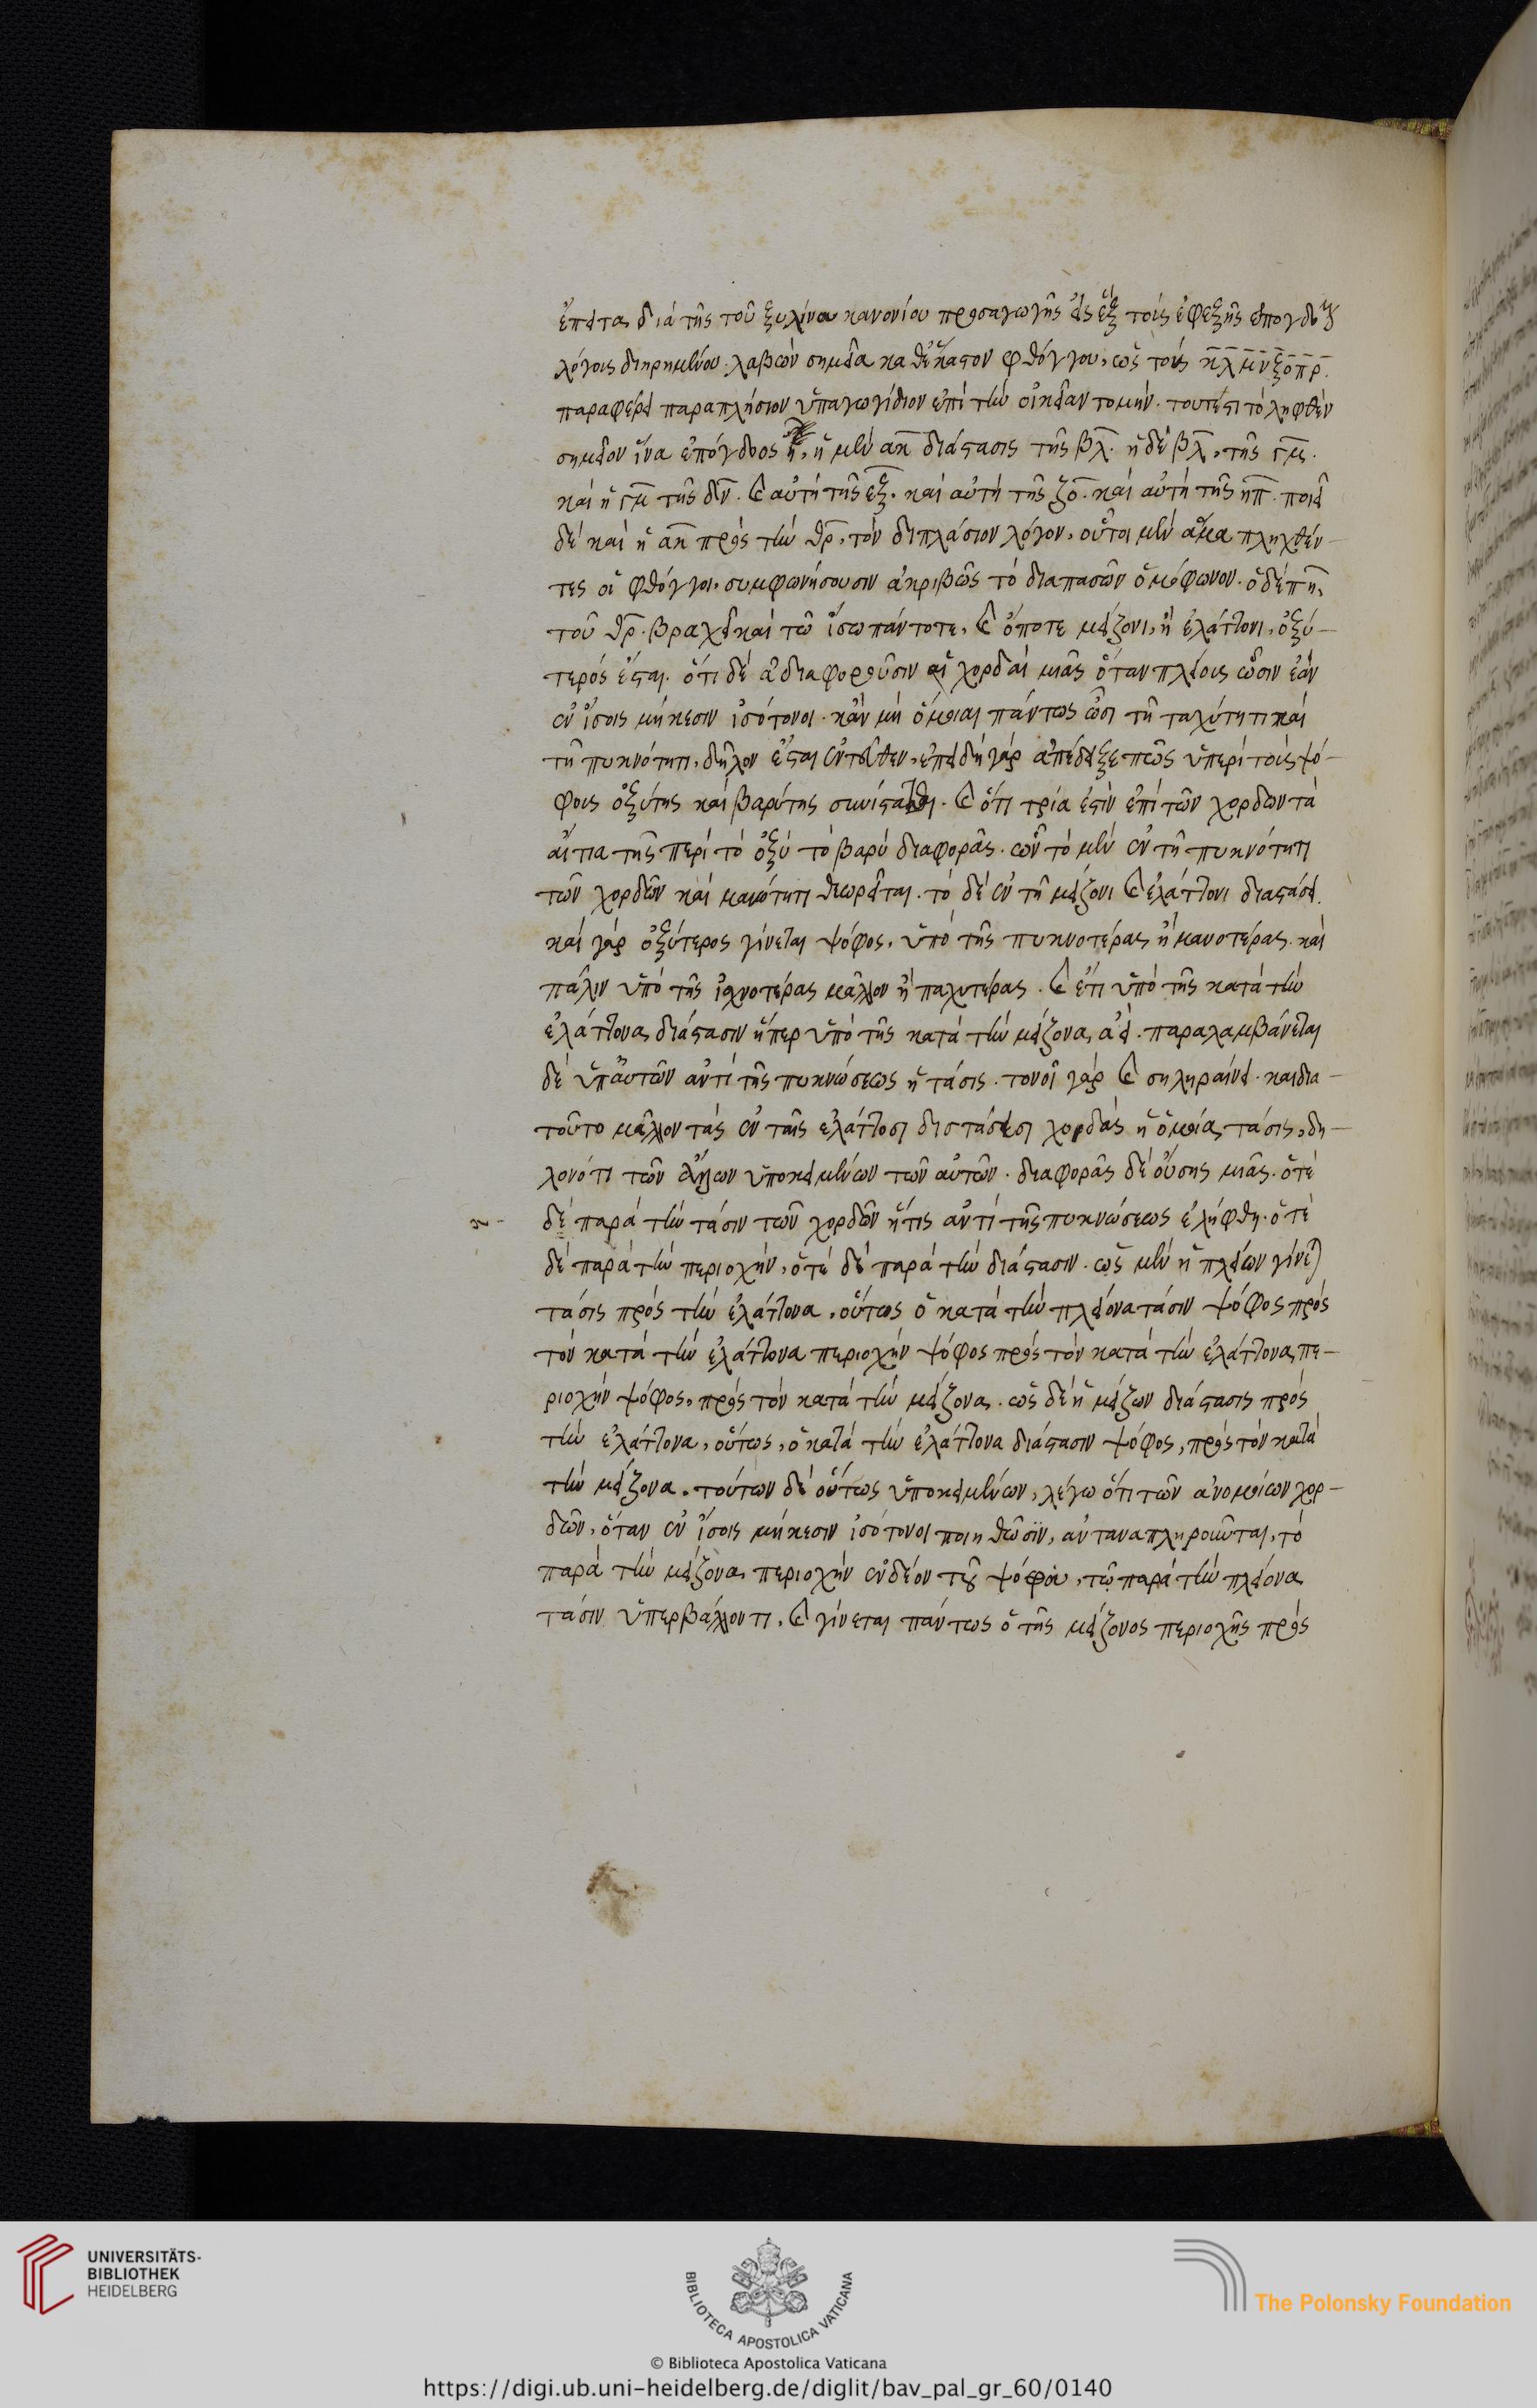 ἔπειτα διὰ τῆς τοῦ ξυλίνου κανονίου προσαγωγῆς εἰς ἓξ τοῖς ἐφεξῆς ἐπογδόοις
λόγοις διῃρημένου. λαβὼν σημεῖα καθ' ἕκαστον φθόγγου, ὡς τοὺς κ̅λ̅μ̅ν̅ξ̅ο̅π̅ρ̅.
παραφέρει παραπλήσιον ὑπαγωγίδιον ἐπὶ τὴν οἰκείαν τομήν. τουτέστι τὸ ληφθὲν
σημεῖον ἵνα ἐπόγδοος ᾖ, ἡ μὲν α̅κ̅ διάστασις τῆς β̅λ̅. ἡ δὲ β̅λ̅, τῆς γ̅μ̅.
καὶ ἡ γ̅μ̅ τῆς δ̅ν̅. καὶ αὐτὴ τῆς ε̅ξ̅. καὶ αὐτὴ τῆς ζ̅ο̅. καὶ αὐτὴ τῆς η̅π̅. ποιεῖ
δὲ καὶ ἡ α̅κ̅ πρὸς τὴν θ̅ρ̅, τὸν διπλάσιον λόγον, οὗτοι μὲν ἅμα πληχθέν–
τες οἱ φθόγγοι, συμφωνήσουσιν ἀκριβῶς τὸ διαπασῶν ὁμόφωνον. ὁ δὲ π̅η̅,
τοῦ θ̅ρ̅. βραχεῖ καὶ τῷ ἴσῳ πάντοτε, καὶ ὁπότε μείζονι, ἢ ἐλάττονι, ὀξύ–
τερός ἐσται. ὅτι δὲ ἀδιαφοροῦσιν αἱ χορδαὶ μιᾶς ὅταν πλείους ὦσιν ἐὰν
ἐν ἴσοις μήκεσιν ἰσότονοι. κἂν μὴ ὅμοιαι πάντως ὦσι τῇ ταχύτητι καὶ
τῇ πυκνότητι, δῆλον ἔσται ἐντεῦθεν, ἐπειδὴ γὰρ ἀπέδειξε πῶς ὑπερὶ τοῖς ψό–
φοις ὀξύτης καὶ βαρύτης συνίσταται. καὶ ὅτι τρία ἐστὶν ἐπὶ τῶν χορδων τὰ
αἴτια τῆς περὶ τὸ ὀξὺ τὸ βαρὺ διαφορᾶς. ὧν τὸ μὲν ἐν τῇ πυκνότητι
τῶν χορδῶν καὶ μανότητι θεωρεῖται. τὸ δὲ ἐν τῇ μείζονι καὶ ἐλάττονι διαστάσει.
καὶ γὰρ ὀξύτερος γίνεται ψόφος, ὑπὸ τῆς πυκνοτέρας ἢ μανοτέρας. καὶ
πάλιν ὑπὸ τῆς ἰσχνοτέρας μᾶλλον ἢ παχυτέρας. καὶ ἔτι ὑπὸ τῆς κατὰ τὴν
ἐλάττονα διάστασιν ἤπερ ὑπὸ τῆς κατὰ τὴν μείζονα, ἀεί. παραλαμβάνεται
δὲ ὑπ' αὐτῶν ἀντὶ τῆς πυκνώσεως ἡ τάσις. τονοῖ γὰρ καὶ σκληραίνει. καὶ δια–
τοῦτο μᾶλλον τὰς ἐν ταῖς ἐλάττοσι διστάσεσι χορδὰς ἡ ὁμοίας τάσις, δη–
λονότι τῶν ἄλλων ὑποκειμένων τῶν αὐτῶν. διαφορᾶς δὲ οὔσης μιᾶς. ὅτὲ
δὲ παρὰ τὴν τάσιν τῶν χορδῶν ἥτις ἀντὶ τῆς πυκνώσεως ἐλήφθη. ὅτὲ
δὲ παρὰ τὴν περιοχὴν, ὅτὲ δὲ παρὰ τὴν διάστασιν. ὡς μὲν ἡ πλείων γίνεται
τάσις πρὸς τὴν ἐλάττονα, οὕτως ὁ κατὰ τὴν πλείονα τάσιν ψόφος πρὸς
τὸν κατὰ τὴν ἐλάττονα περιοχὴν ψόφος πρὸς τὸν κατὰ τὴν ἐλάττονα πε–
ριοχὴν ψόφος, πρὸς τὸν κατὰ τὴν μείζονα. ὡς δὲ ἡ μείζων διάστασις πρὸς
τὴν ἐλάττονα, οὕτως, ὁ κατὰ τὴν ἐλάττονα διάστασιν ψόφος, πρὸς τὸν κατὰ
τὴν μείζονα. τούτων δὲ οὕτως ὑποκειμένων, λέγω ὅτι τῶν ἀνομοίων χορ–
δῶν, ὅταν ἐν ἴσοις μήκεσιν ἰσότονοι ποιηθῶσϊν, ἀνταναπληροῦνται, τὸ
παρὰ τὴν μείζονα περιοχὴν ἐνδέον τοῦ ψόφου, τῷ παρὰ τὴν πλείονα
τάσιν ὑπερβάλλοντι, καὶ γίνεται πάντως ὁ τῆς μείζονος περιοχῆς πρὸς
UNIVERSITÄTS-
BIBLIOTHEK
HEIDELBERG
BIBLIOTECA APOSTOLICA VATICANA
The Polonsky Foundation
© Biblioteca Apostolica Vaticana
https://digi.ub.uni-heidelberg.de/diglit/bav_pal_gr_60/0140